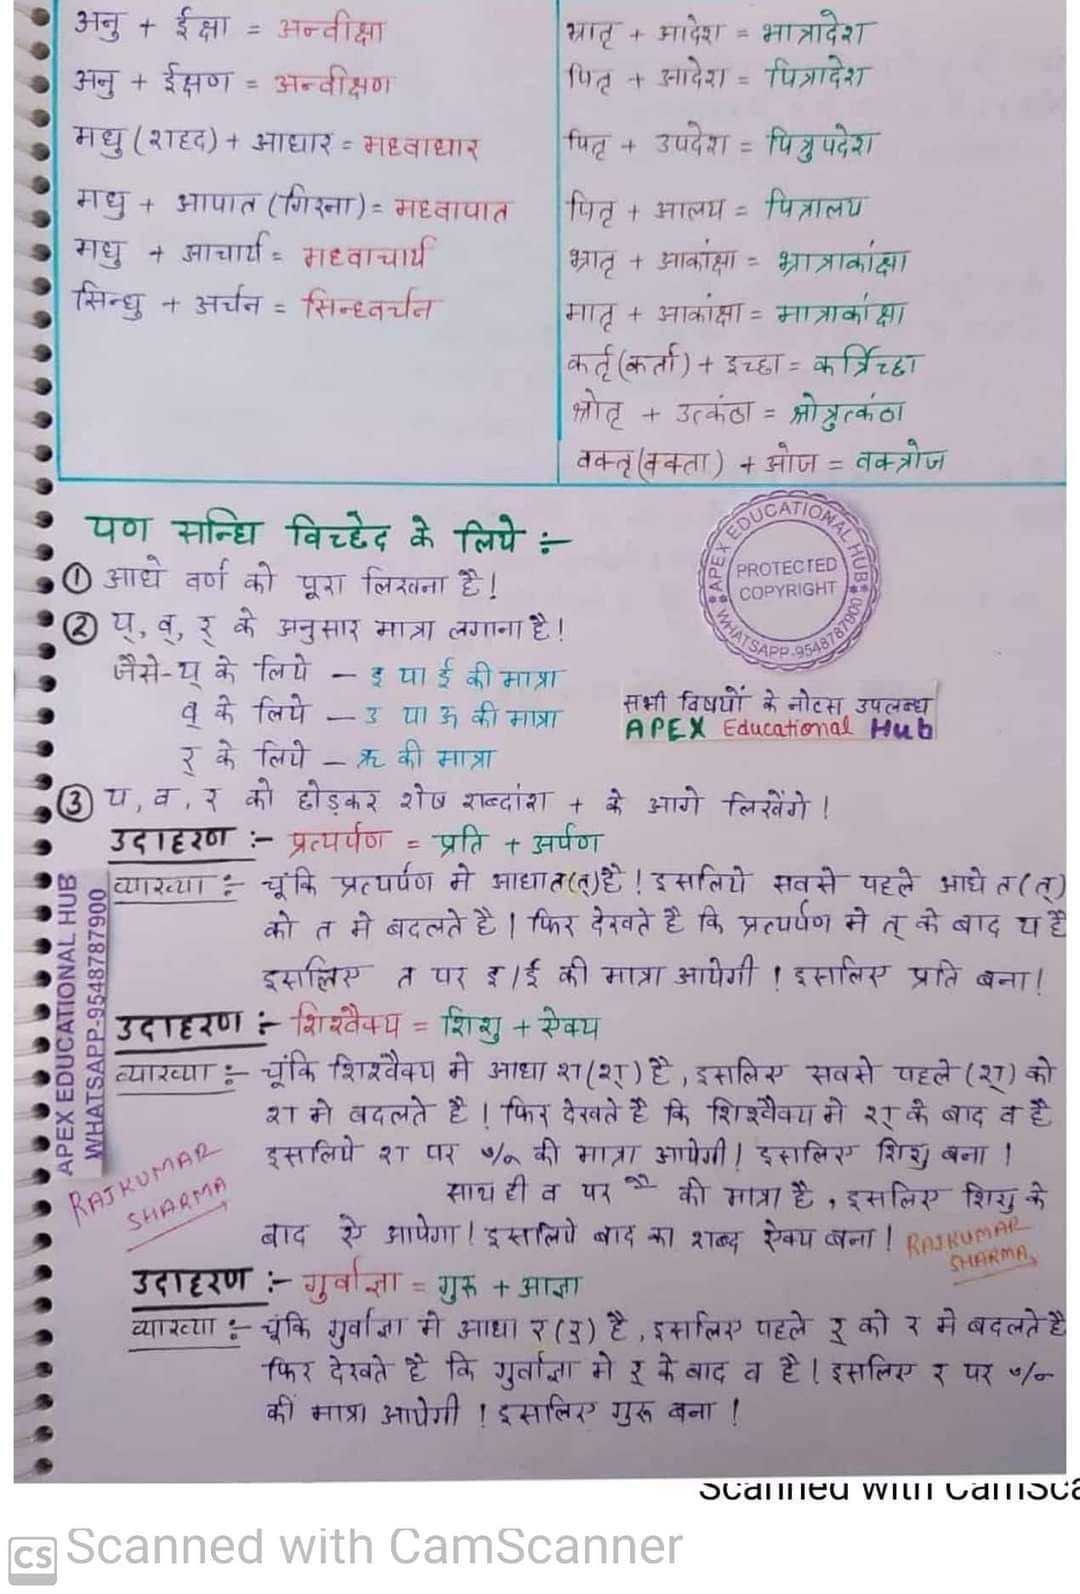 अनु + ईक्षा = अन्वीक्षा
अनु + ईक्षण = अन्वीक्षण
मधु (शहद) + आधार = मध्वाधार
मधु + आपात (गिरना) = मध्वापात
मधु + आचार्य = मध्वाचार्य
सिन्धु + अर्चन = सिन्ध्वर्चन
भ्रातृ + आदेश = भात्रादेश
पितृ + आदेश = पित्रादेश
पितृ + उपदेश = पित्रुपदेश
पितृ + आलय = पित्रालय
भ्रातृ + आकांक्षा = भ्रात्राकांक्षा
मातृ + आकांक्षा = मात्राकांक्षा
कर्तृ (कर्ता) + इच्छा = कर्त्रिच्छा
श्रोतृ + उत्कंठा = श्रोत्रुत्कंठा
वक्तृ (वक्ता) + ओज = वक्त्रोज
यण सन्धि विच्छेद के लिये :-
① आधे वर्ण को पूरा लिखना है!
② य्, व्, र् के अनुसार मात्रा लगाना है!
जैसे- य् के लिये - इ या ई की मात्रा
व् के लिये - उ या ऊ की मात्रा
र् के लिये - ऋ की मात्रा
APEX EDUCATIONAL HUB
PROTECTED
COPYRIGHT
WHATSAPP-9548787900
सभी विषयों के नोटस उपलब्ध
APEX Educational Hub
③ य, व, र को छोड़कर शेष शब्दांश + के आगे लिखेंगे !
उदाहरण :- प्रत्यर्पण = प्रति + अर्पण
व्याख्या :- चूंकि प्रत्यर्पण मे आधा त(त्) है ! इसलिये सबसे पहले आधे त (त्)
को त मे बदलते है। फिर देखते है कि प्रत्यर्पण मे त् के बाद य है
इसलिए त पर इ/ई की मात्रा आयेगी ! इसलिए प्रति बना!
उदाहरण :- शिश्वैक्य = शिशु + ऐक्य
व्याख्या :- चूंकि शिश्वैक्य मे आधा श (श्) है, इसलिए सबसे पहले (श्) को
श मे बदलते है ! फिर देखते है कि शिश्वैक्य मे श् के बाद व है
इसलिये श पर ु/ू की मात्रा आयेगी! इसलिए शिशु बना !
साथ ही व पर ै की मात्रा है, इसलिए शिशु के
बाद ऐ आयेगा ! इसलिये बाद का शब्द ऐक्य बना !
RAJKUMAR
SHARMA
RAJKUMAR
SHARMA
उदाहरण :- गुर्वाज्ञा = गुरु + आज्ञा
व्याख्या :- चूंकि गुर्वाज्ञा मे आधा र (र्) है, इसलिए पहले र् को र मे बदलते है
फिर देखते है कि गुर्वाज्ञा मे र् के बाद व है ! इसलिए र पर ु/ू
की मात्रा आयेगी ! इसलिए गुरू बना !
APEX EDUCATIONAL HUB
WHATSAPP-9548787900
Scanned with CamSca
CS Scanned with CamScanner